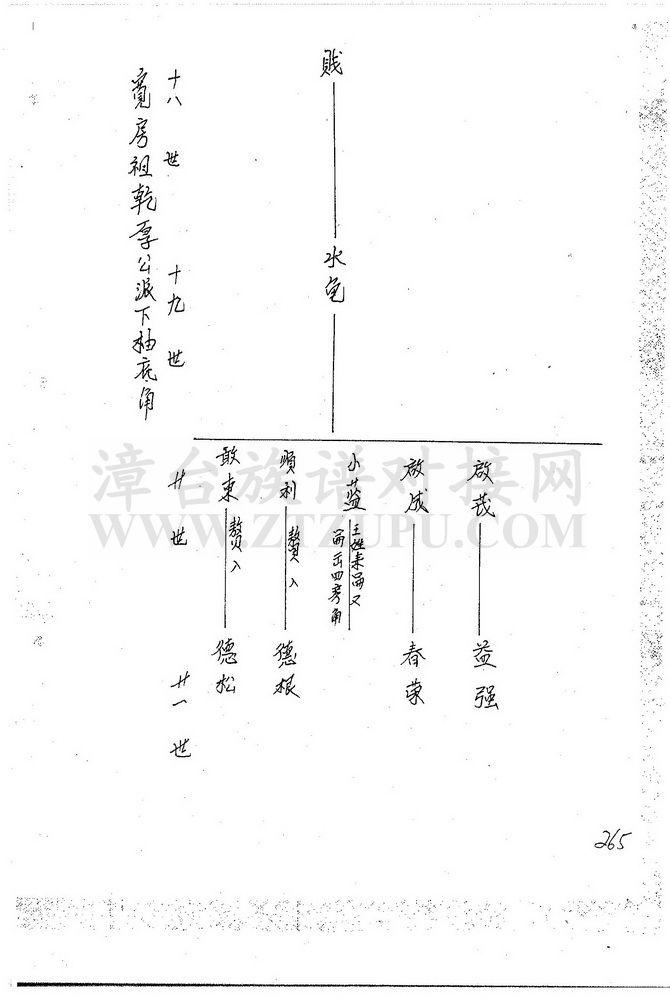 寬房祖乾厚公派下柚底角
十八世
十九世
廿世
廿一世
贱
水龟
啟茂
啟成
小蓝
順利
敢東
王姓来
又
出四房角
贅入
贅入
益强
春荣
德根
德松
漳台族谱对接网
WWW.ZTZUPU.COM
265